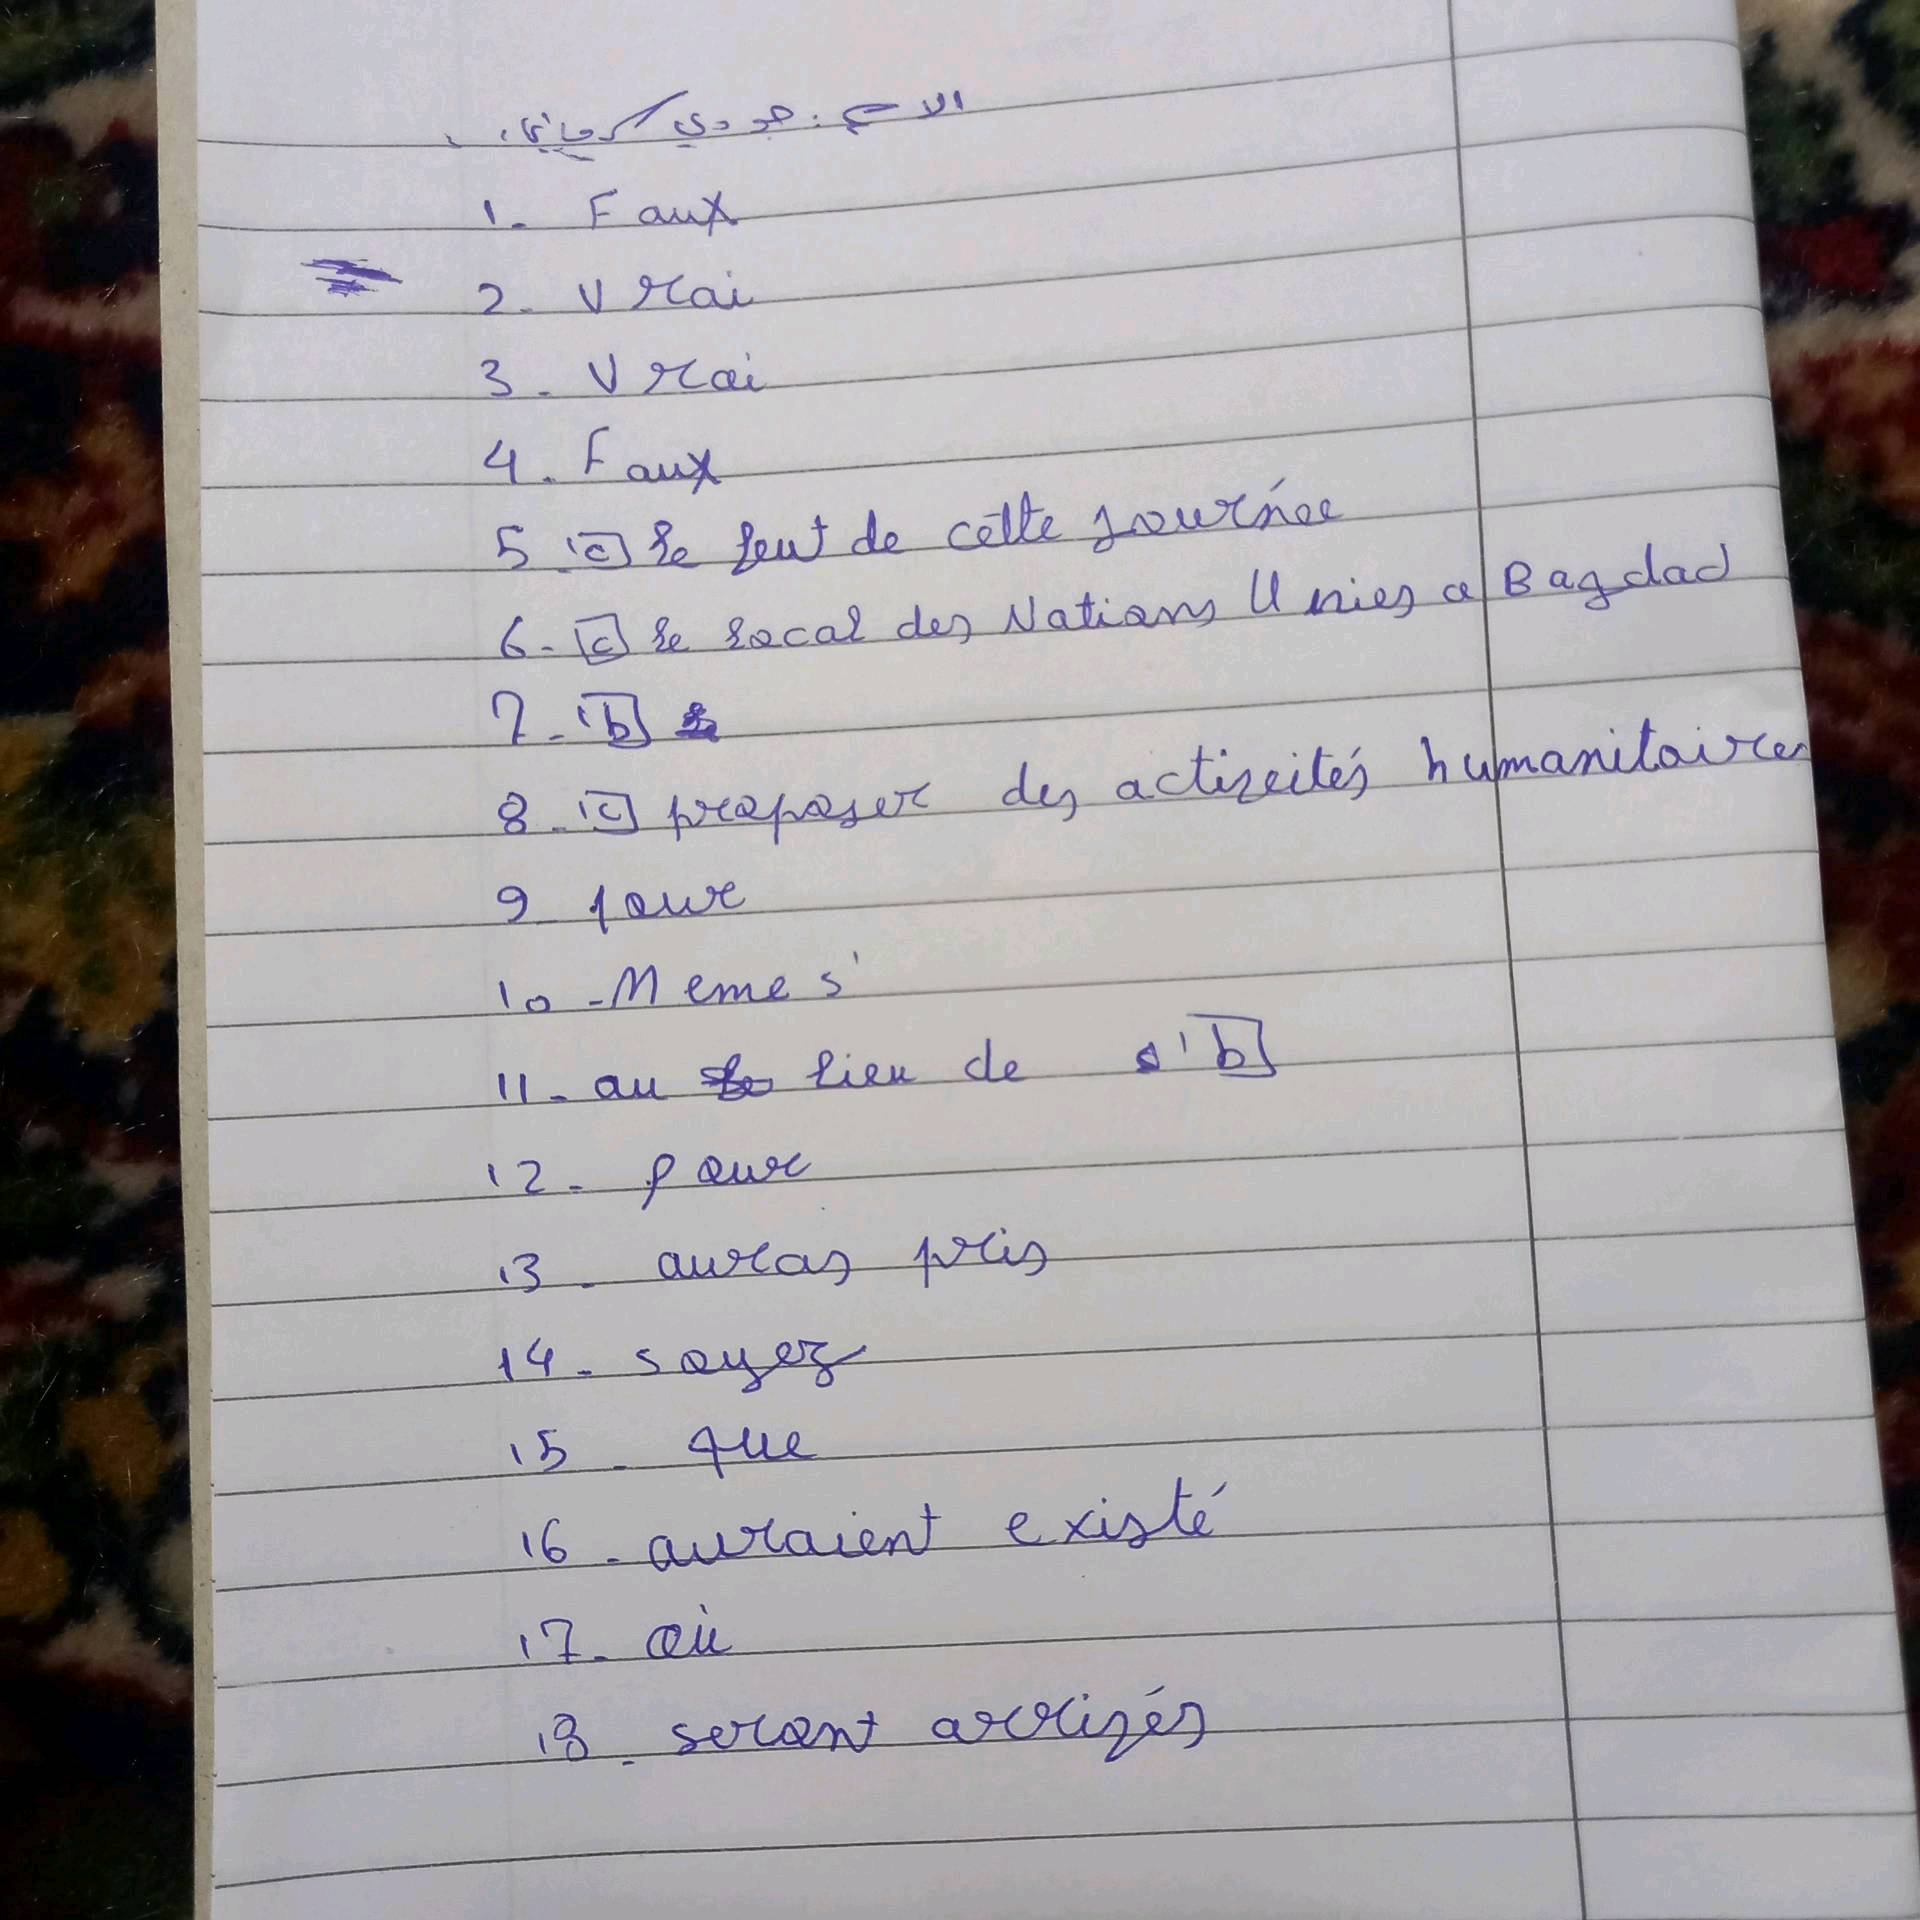 الاسم : جودي كرماني
1. Faux
2. Vrai
3. Vrai
4. Faux
5. c le but de cette journée
6. c le local des Nations Unies a Bagdad
7. b
8. c proposer des activités humanitaires
9 pour
10 - Meme s'
11. au lieu de b
12. pour
13. auras pris
14. soyez
15. que
16. auraient existé
17. où
18. seront arrivés